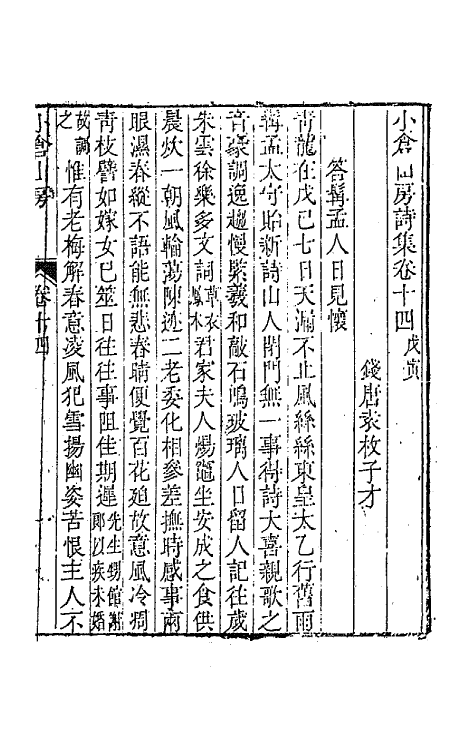 小倉山房詩集卷十四戊寅
錢唐袁枚子才
答髯孟人日見懷
青龍在戊己七日天漏不止風絲絲東皇太乙行舊雨
髯孟太守貽新詩山人閉門無一事得詩大喜親歌之
音豪調逸趨慢緊羲和敲石鳴玻璃人日留人記往歲
朱雲徐樂多文詞草衣鳧木君家夫人煬竈坐安成之食供
晨炊一朝風輪蕩陳迹二老委化相參差撫時感事兩
眼濕春縱不語能無悲春晴便覺百花廹故意風冷凋
靑枝譬如嫁女已筮日往往事阻佳期遲先生甥館謝郎以疾未婚
故調之惟有老梅解春意凌風犯雪揚幽姿苦恨主人不
小倉山房
卷十四